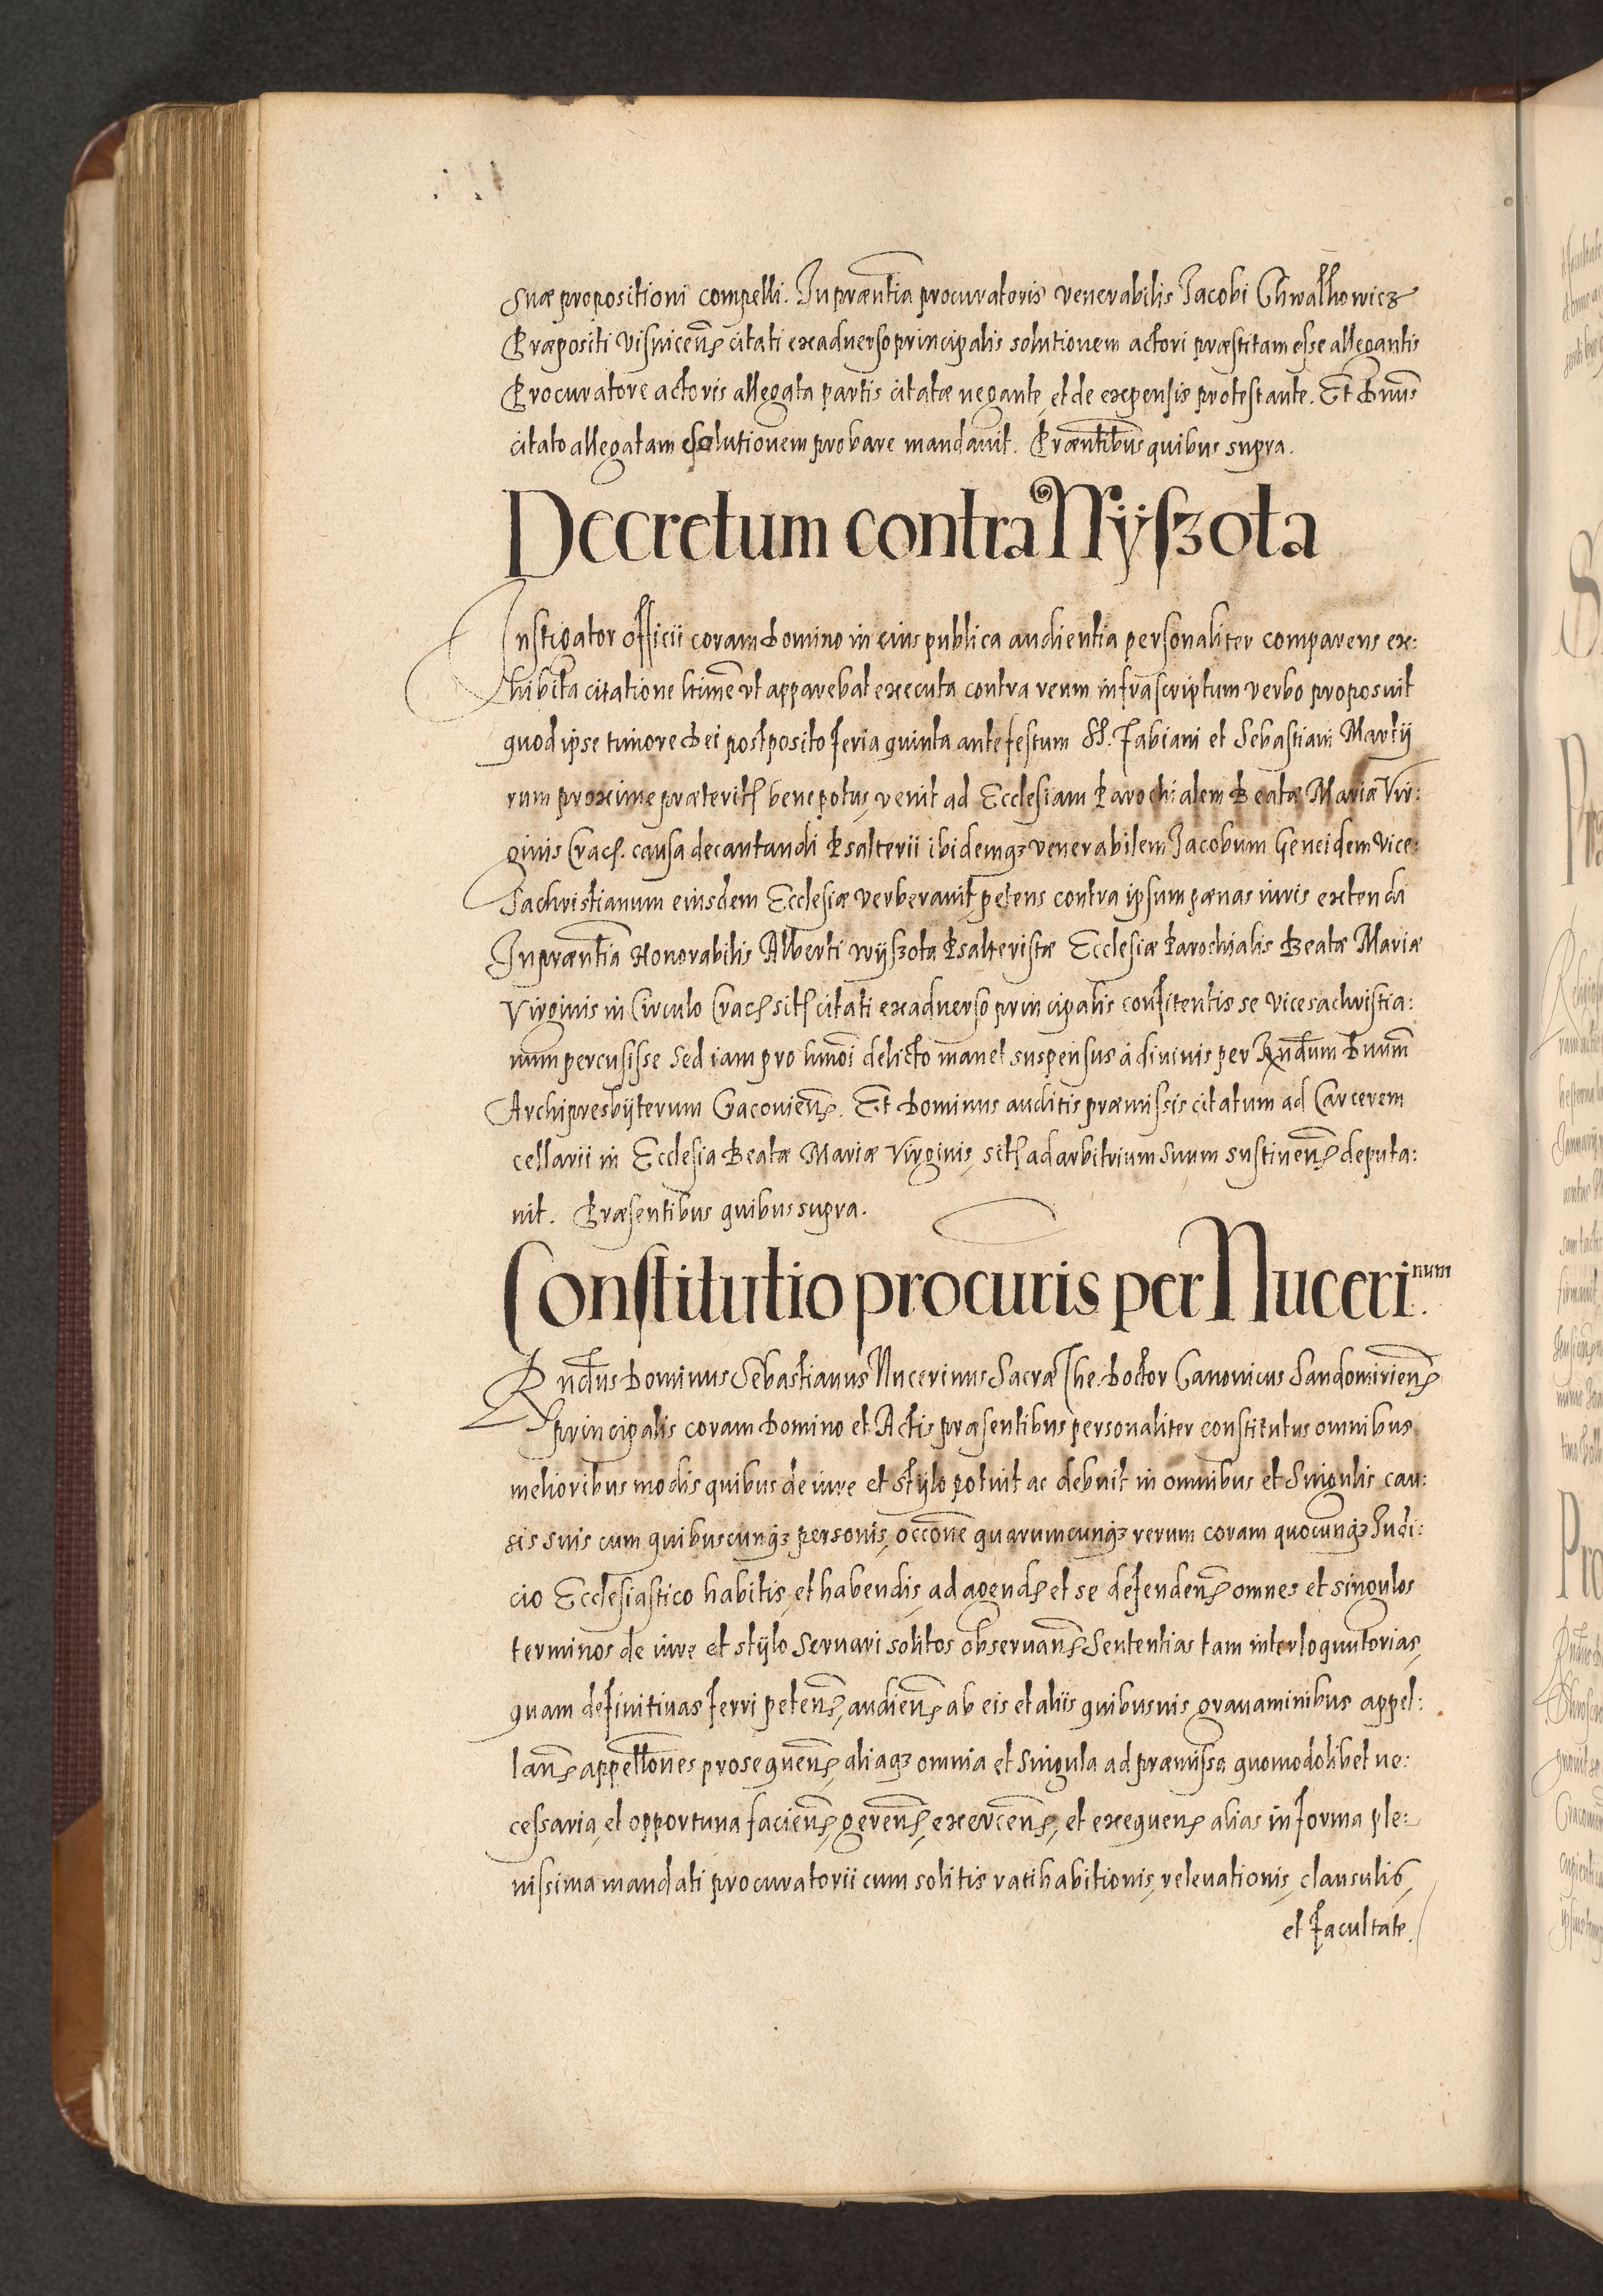 suæ propositioni compelli. In præntia procuratoris venerabilis Jacobi Chwalkowicz
Præpositi Visnicen̄ citati ex adverso principalis solutionem actori præstitam esse allegantis
Procuratore actoris allegata partis citatæ negante, et de expensis protestante. Et Dnus
citato allegatam solutionem probare mandavit. Præntibus quibus supra.
Decretum contra Wÿszota
Instigator officii coram Domino in eius publica audientia personaliter comparens ex:
hibita citatione ltime vt apparebat executa contra reum infrascriptum verbo proposuit
quod ipse timore Dei postposito feria quinta ante festum SS. Fabiani et Sebastiani Martÿ
rum proxime præterit bene potus, venit ad Ecclesiam Parochialem Beatæ Mariæ Vir:
ginis Crac. causa decantandi Psalterii ibidemqз venerabilem Jacobum Geneidem Vice:
sachristianum eiusdem Ecclesiæ verberavit, petens contra ipsum pænas iuris extendi
In præntia Honorabilis Alberti wÿszota Psalteristæ Ecclesiæ Parochialis Beatæ Mariæ
Virginis in Circulo Crac sit citati ex adverso principalis confitentis se vicesachristia:
num percusisse sed iam pro hmoi delicto manet suspensus á divinis per Rndum Dnum
Archipresbÿterum Cracovien̄. Et Dominus auditis præmissis citatum ad Carcerem
cellarii in Ecclesia Beatæ Mariæ Virginis, sit ad arbitrium suum sustinen̄ deputa:
uit. Præsentibus quibus supra.
Constitutio procuris per Nuceri.num
Rndus Dominus Sebastianus Nucerinus Sacræ The. Doctor Canonicus Sandomirien̄
principalis coram Domino et Actis præsentibus personaliter constitutus omnibus
melioribus modis quibus de iure et stÿlo potuit ac debuit in omnibus et Singulis cau:
sis suis cum quibuscunqз personis, occone quarumcunqз rerum coram quocunqз Judi:
cio Ecclesiastico habitis, et habendis, ad agend et se defenden̄ omnes et singulos
terminos de iure et stÿlo servari solitos observan̄ Sententias tam interloquutorias,
quam definitivas ferri peten̄, audien̄ ab eis et aliis quibusvis gravaminibus appel:
lan̄ appellones prosequen̄, aliaqз omnia et Singula ad præmissa quomodolibet ne:
cessaria, et opportuna facien̄, geren̄, exercen̄, et exequen̄ alias in forma ple:
nissima mandati procuratorii cum solitis ratihabitionis, relevationis, clausulis,
et facultate.